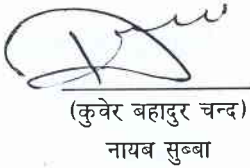 (कुवेर बहादुर चन्द)
नायब सुब्बा